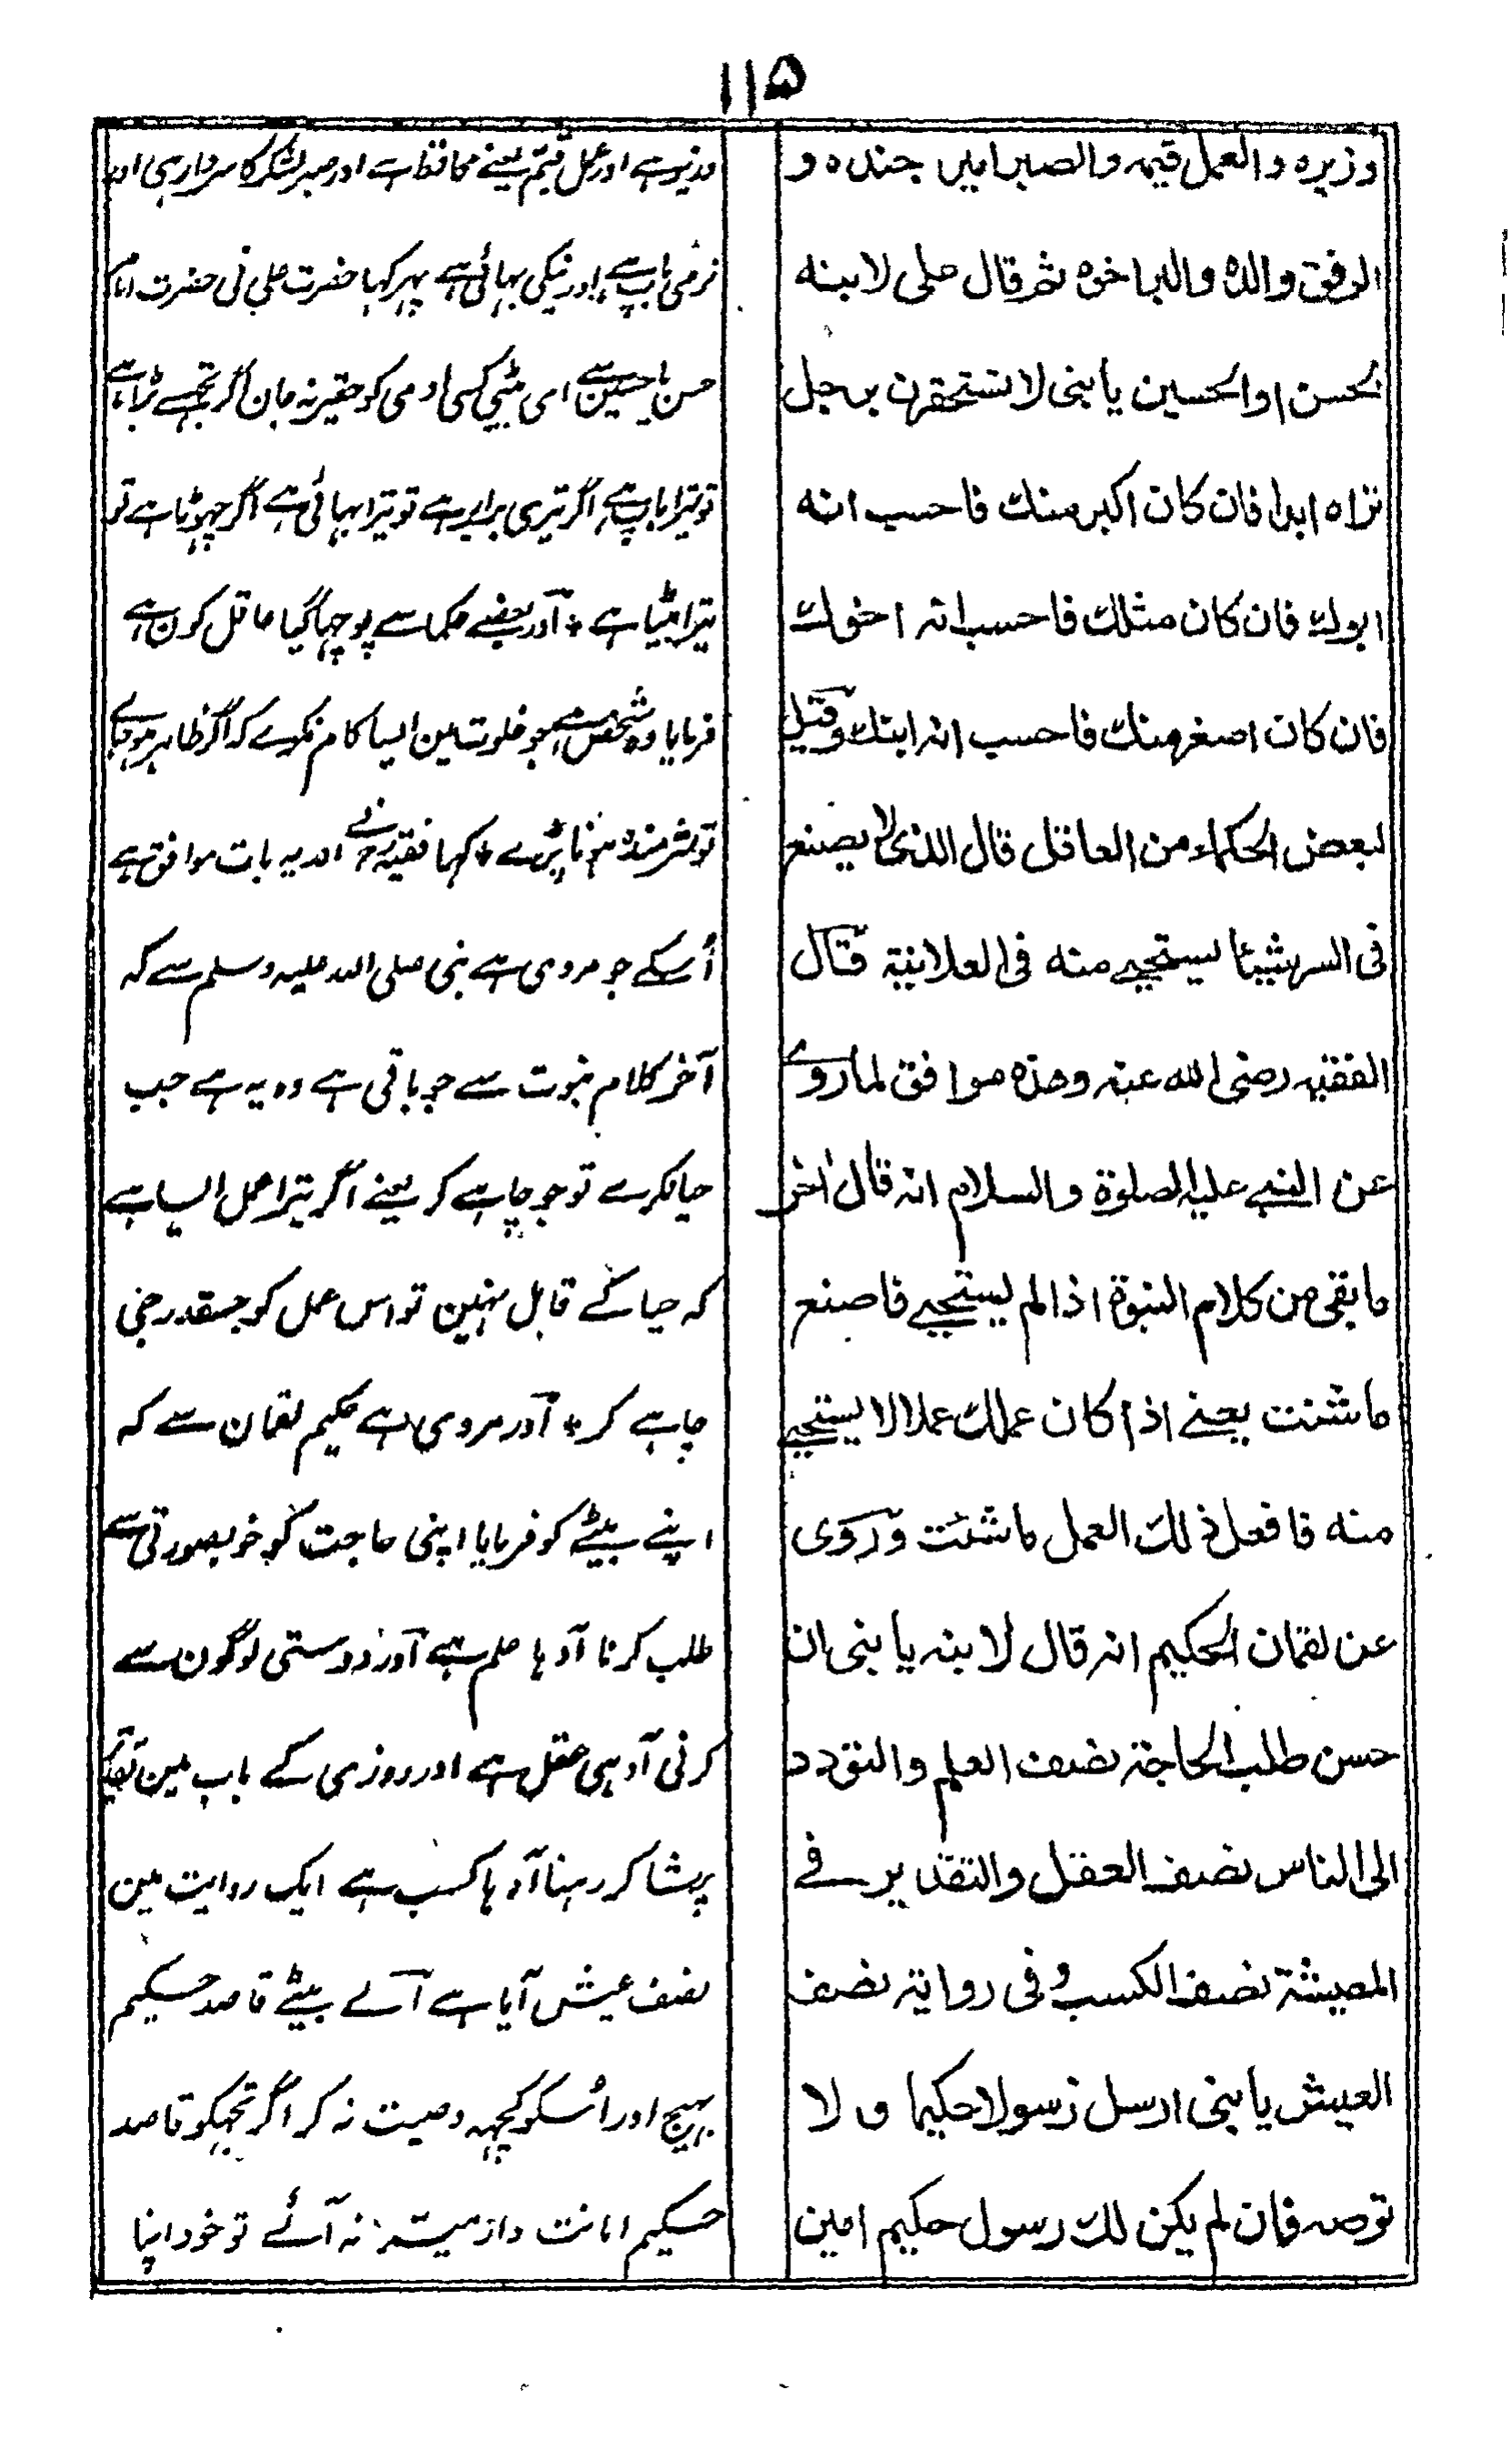 ۱۱۵
وزيره والعمل قيمه والصبر امير جنده و
الرفق والده والبر اخوه ثم قال علی لابنه
الحسن او الحسين يا بنی لا تستحقرن برجل
تراه ابدا فان كان اكبر منك فاحسب انه
ابوك فان كان مثلك فاحسب انه اخوك
فان كان اصغر منك فاحسب انه ابنك وقيل
لبعض الحكماء من العاقل قال الذی لا يصنع
فی السر شيئا يستحيے منه فی العلانية قال
الفقيه رضی الله عنه وهذه موافق لما روے
عن النبے عليه الصلوة والسلام انه قال اخر
ما بقی من كلام النبوة اذا لم يستحيے فاصنع
ما شئت يعنے اذا كان عملك عملا لا يستحيے
منه فافعل ذلك العمل ما شئت وروی
عن لقمان الحكيم انه قال لابنه يا بنی ان
حسن طلب الحاجة نصف العلم والتودد
الی الناس نصف العقل والتقدير فے
المعيشة نصف الكسب وفی رواية نصف
العيش يا بنی ارسل رسولا حكيما و لا
توصه فان لم يكن لك رسول حكيم امين
وزیر ہے اور عمل قیم یعنے محافظ ہے اور صبر لشکر کا سردار ہی اور
نرمی باپ ہے اور نیکی بہائی ہے پہر کہا حضرت علی نی حضرت امام
حسن یا حسین سے ای بیٹی کسی ادمی کو حقیر نہ جان اگر تجھسے بڑا ہے
تو تیرا باپ ہے اگر تیری برابر ہے تو تیرا بہائی ہے اگر چہوٹا ہے تو
تیرا بیٹا ہے * آور بعضے حکما سے پوچہا گیا عاقل کون ہے
فرمایا وہ شخص ہے جو خلوت مین ایسا کام نکرے کہ اگر ظاہر ہو جاے
تو شرمندہ ہونا پڑے * کہا فقیہ رح نے اور یہ بات موافق ہے
اُسکے جو مروی ہے نبی صلی اللہ علیہ وسلم سے کہ
آخر کلام نبوت سے جو باقی ہے وہ یہ ہے جب
حیا نکرے تو جو چاہے کر یعنے اگر تیرا عمل ایسا ہے
کہ حیا کے قابل نہین تو اس عمل کو جسقدر جی
چاہے کر * آور مروی ہے حکیم لقمان سے کہ
اپنے بیٹے کو فرمایا اپنی حاجت کو خوبصورتی سے
طلب کرنا آدہا علم ہے آور دوستی لوگون سے
کرنی آدہی عقل ہے اور روزی کے باب مین
کر رہنا آدہا کسب ہے ایک روایت مین
نصف عیش آیا ہے آے بیٹے قاصد حکیم
بہیج اور اُسکو کچہہ وصیت نہ کر اگر تجہکو قاصد
حکیم امانت دار میسر نہ آئے تو خود اپنا